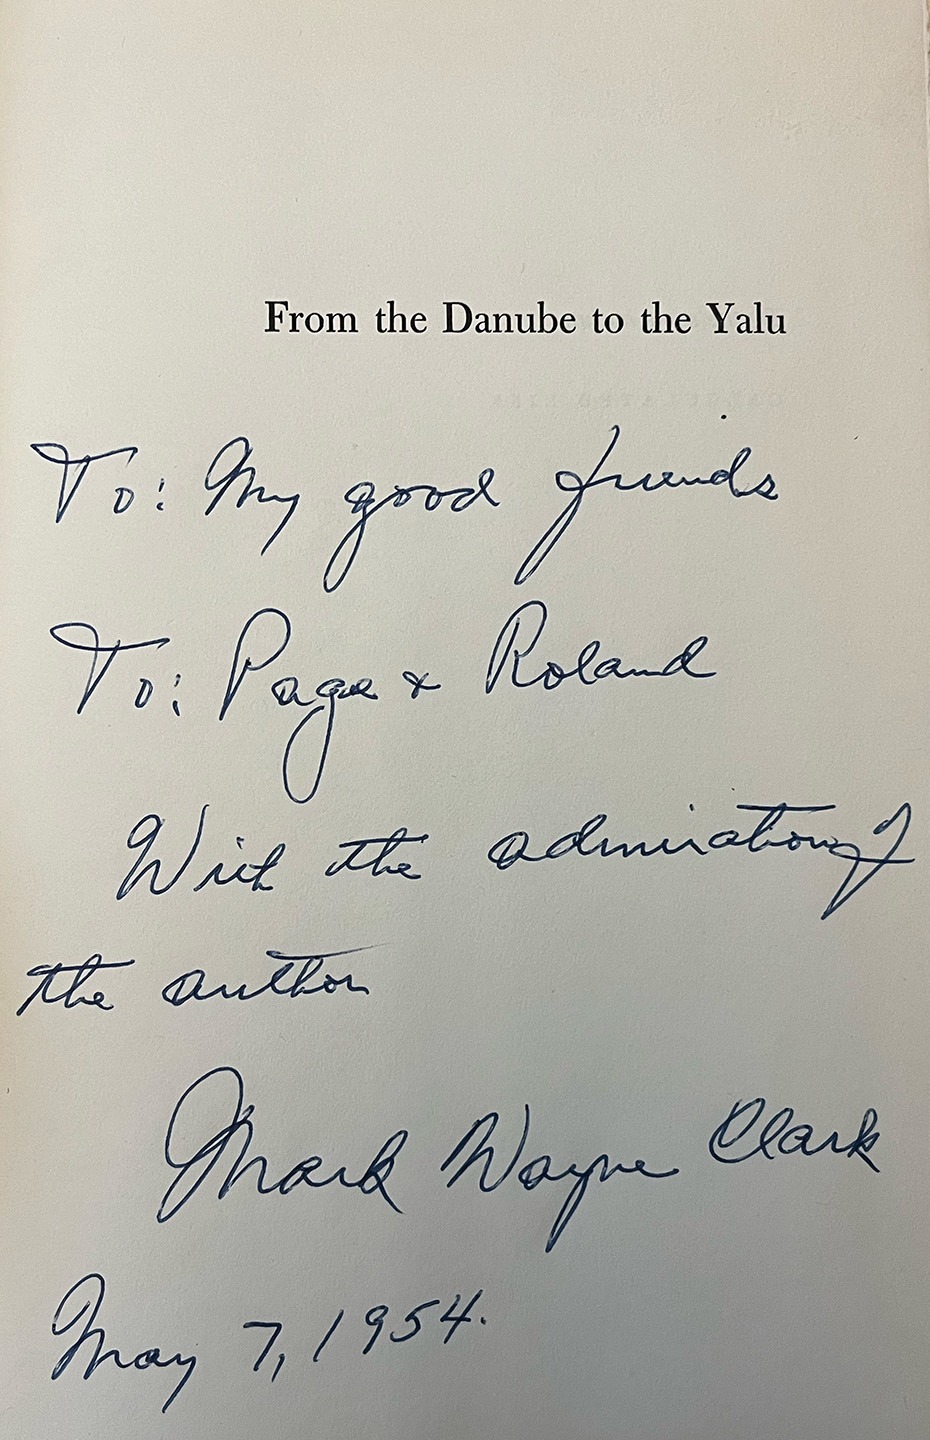 From the Danube to the Yalu
To: My good friends
To: Page & Roland
With the admiration of
the author
Mark Wayne Clark
May 7, 1954.